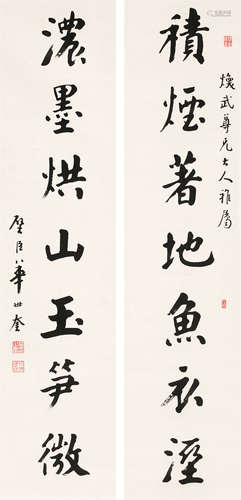 懷武尊兄大人雅屬
積煙著地魚衣溼
濃墨烘山玉笋微
華世奎